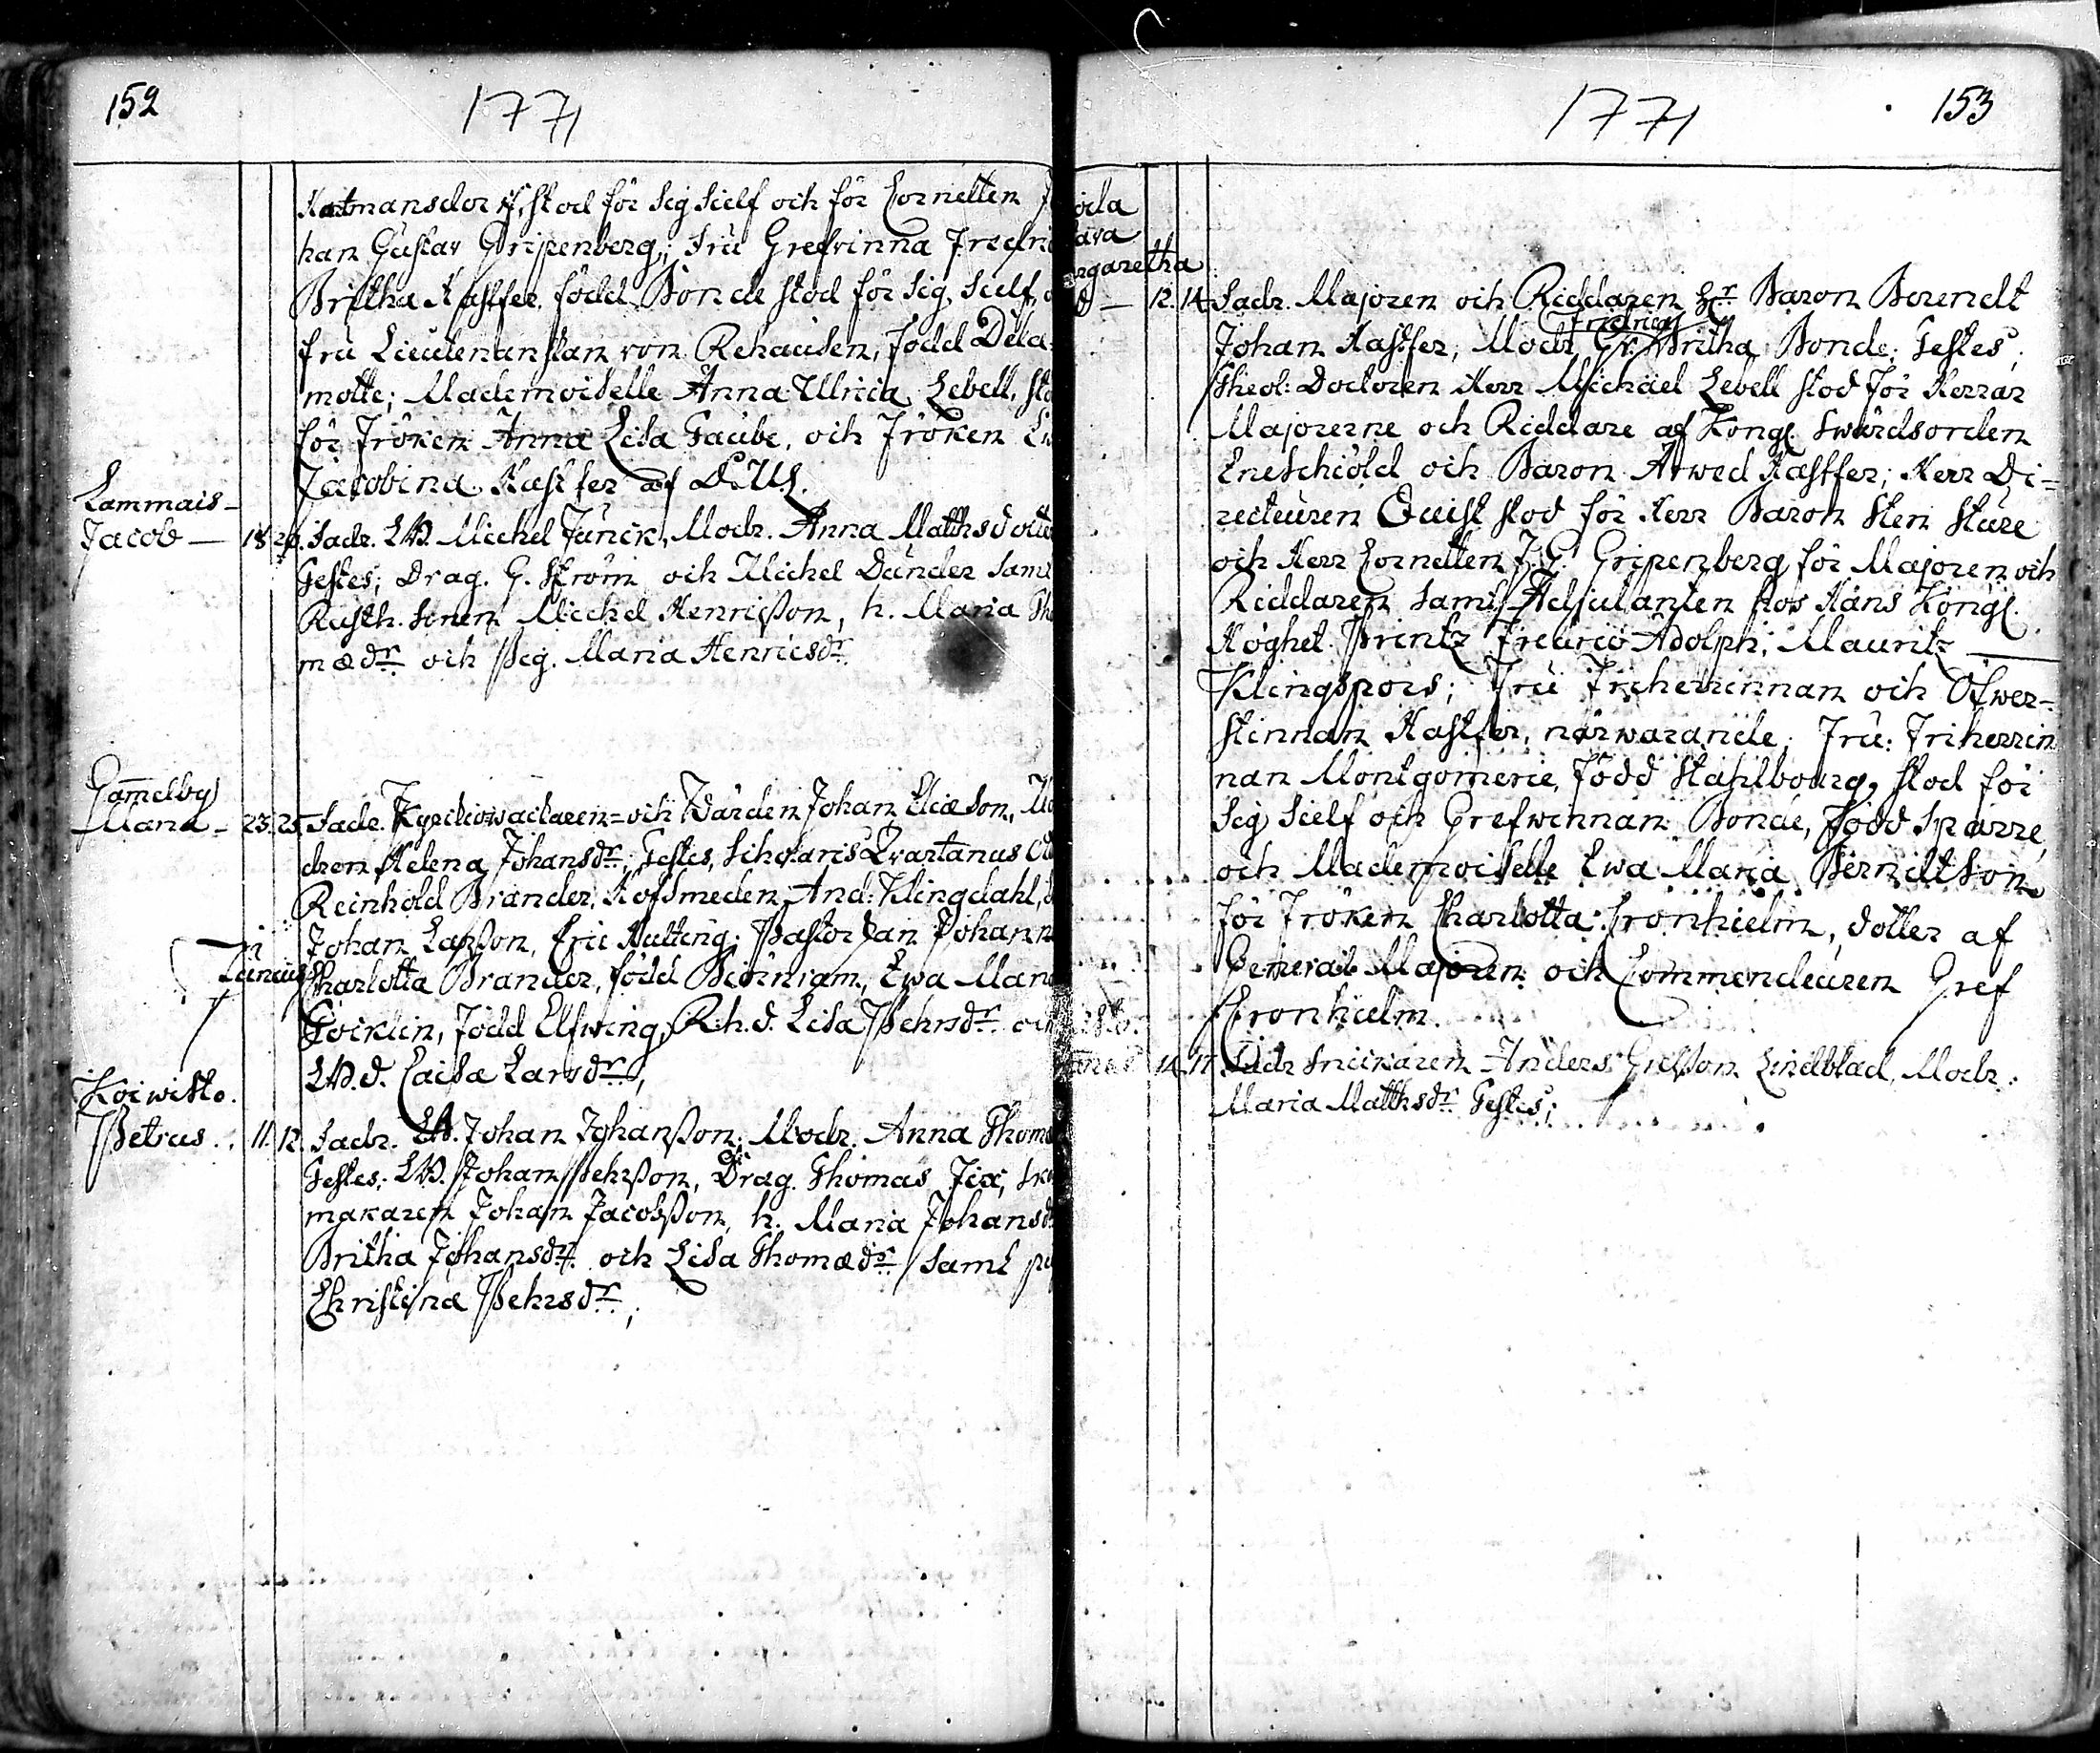 152
1771
Katmansdorff, stod för sig sielf och för Cornetten
han Gustav Gripenberg; fru Grefvinna Fredri
Britha Kastfer, född Bonde stod för sig sielf,
fru Lieutenanskan von Rehausen, född Dela-
motte; Mademoiselle Anna Ulrica Lebell, sto
för Fröken Anna Lisa Taube, och Fröken
Jacobina Kastfer af D.U.S.
Lammais-
Jacob — 18. 20. Fadr. LB. Michel Junck, Modr. Anna Matthsdotte
Testes; Drag. G. Ström och Michel Dunder samt
Rusth. sonen Michel Henrisson, h. Maria Tho
mædr och Pig. Maria Henricsdr.
Gamelby
Maria — 23. 25. Fadr. Kyrckiowachtaren och Wärden Johan Eliæson, Mo
dren Helena Johansdr; Testes, Scholaris Qvartanus
Reinhold Brander, Hofsmeden And: Klingdahl,
Johan Larsson, Eric Hulting; Pastorskan Johann
Junius
Charlotta Brander, född Biörnram, Ewa Mari
Göcklin, född Elfwing, R.h.d. Lisa Pehrsdr och
LB.d. Caisa Larsdr;
Koiwisto.
Petrus. 11. 12. Fadr. LB. Johan Johansson, Modr. Anna Thom
Testes; LB. Johan Pehrsson, Drag. Thomas Fix,
makaren Johan Jacobsson, h. Maria Johansdr
Britha Johansdr och Lisa Thomædr samt pi
Christina Pehrsdr;
1771
153
oda
ara
rgaretha
12. 14. Fadr. Majoren och Riddaren Hr Baron Berendt
Fredrica
Johan Kastfer, Modr Gr. Britha Bonde; Testes;
Theol: Doctoren Herr Michael Lebell stod för Herrar
Majorerne och Riddare af Kongl. Swärdsorden
Eneschiöld och Baron Arwed Kastfer; Herr Di-
recteuren Quist stod för Herr Baron Sten Sture
och Herr Cornetten J.G. Gripenberg för Majoren och
Riddaren samt Adjutanten hos Hans Kongl.
Höghet Printz Fredric Adolph, Mauritz
Klingspors; Fru Friherrinnan och Öfwer-
stinnan Kastfer, närwarande; Fru Friherrin
nan Montgomerie, född Stahlbourg, stod för
sig sielf och Grefwinnan Bonde, född Sparre,
och Mademoiselle Ewa Maria Berndtson
för Fröken Charlotta Cronhielm, dotter af
General Majoren och Commendeuren Gref
Cronhielm.
14. 17. Fadr Snickaren Anders Grelsson Lindblad, Modr.
Maria Matthsdr. Testes;